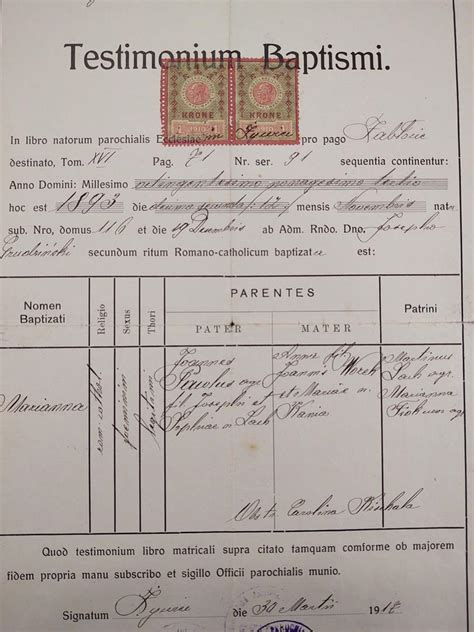 Testimonium Baptismi.
KRONE KRONE
1910
In libro natorum parochialis Ecclesiae in pro pago
destinato, Tom. XVI Pag. 71 Nr. ser. 91 sequentia continentur:
Anno Domini: Millesimo octingentesimo nonagesimo tertio
hoc est 1893 die duodecima 12 mensis Novembris nata
sub. Nro, domus 116 et 19 Decembris ab Adm. Rndo. Dno. Josepho
Grudziński secundum ritum Romano-catholicum baptizata est:
Nomen Baptizati
Religio
Sexus
Thori
PARENTES
PATER
MATER
Patrini
Marianna
rom. cathol.
femininum
legitimi
Joannes
Pawlus agr.
fil. Josephi et
Sophiae n. Lach
Anna fil.
Joannis
et Mariae n.
Kania
Martinus
Lach agr.
Marianna
agr.
Obst. Carolina
Quod testimonium libro matricali supra citato tamquam comforme ob majorem
fidem propria manu subscribo et sigillo Officii parochialis munio.
Signatum die 30 Martii 1918